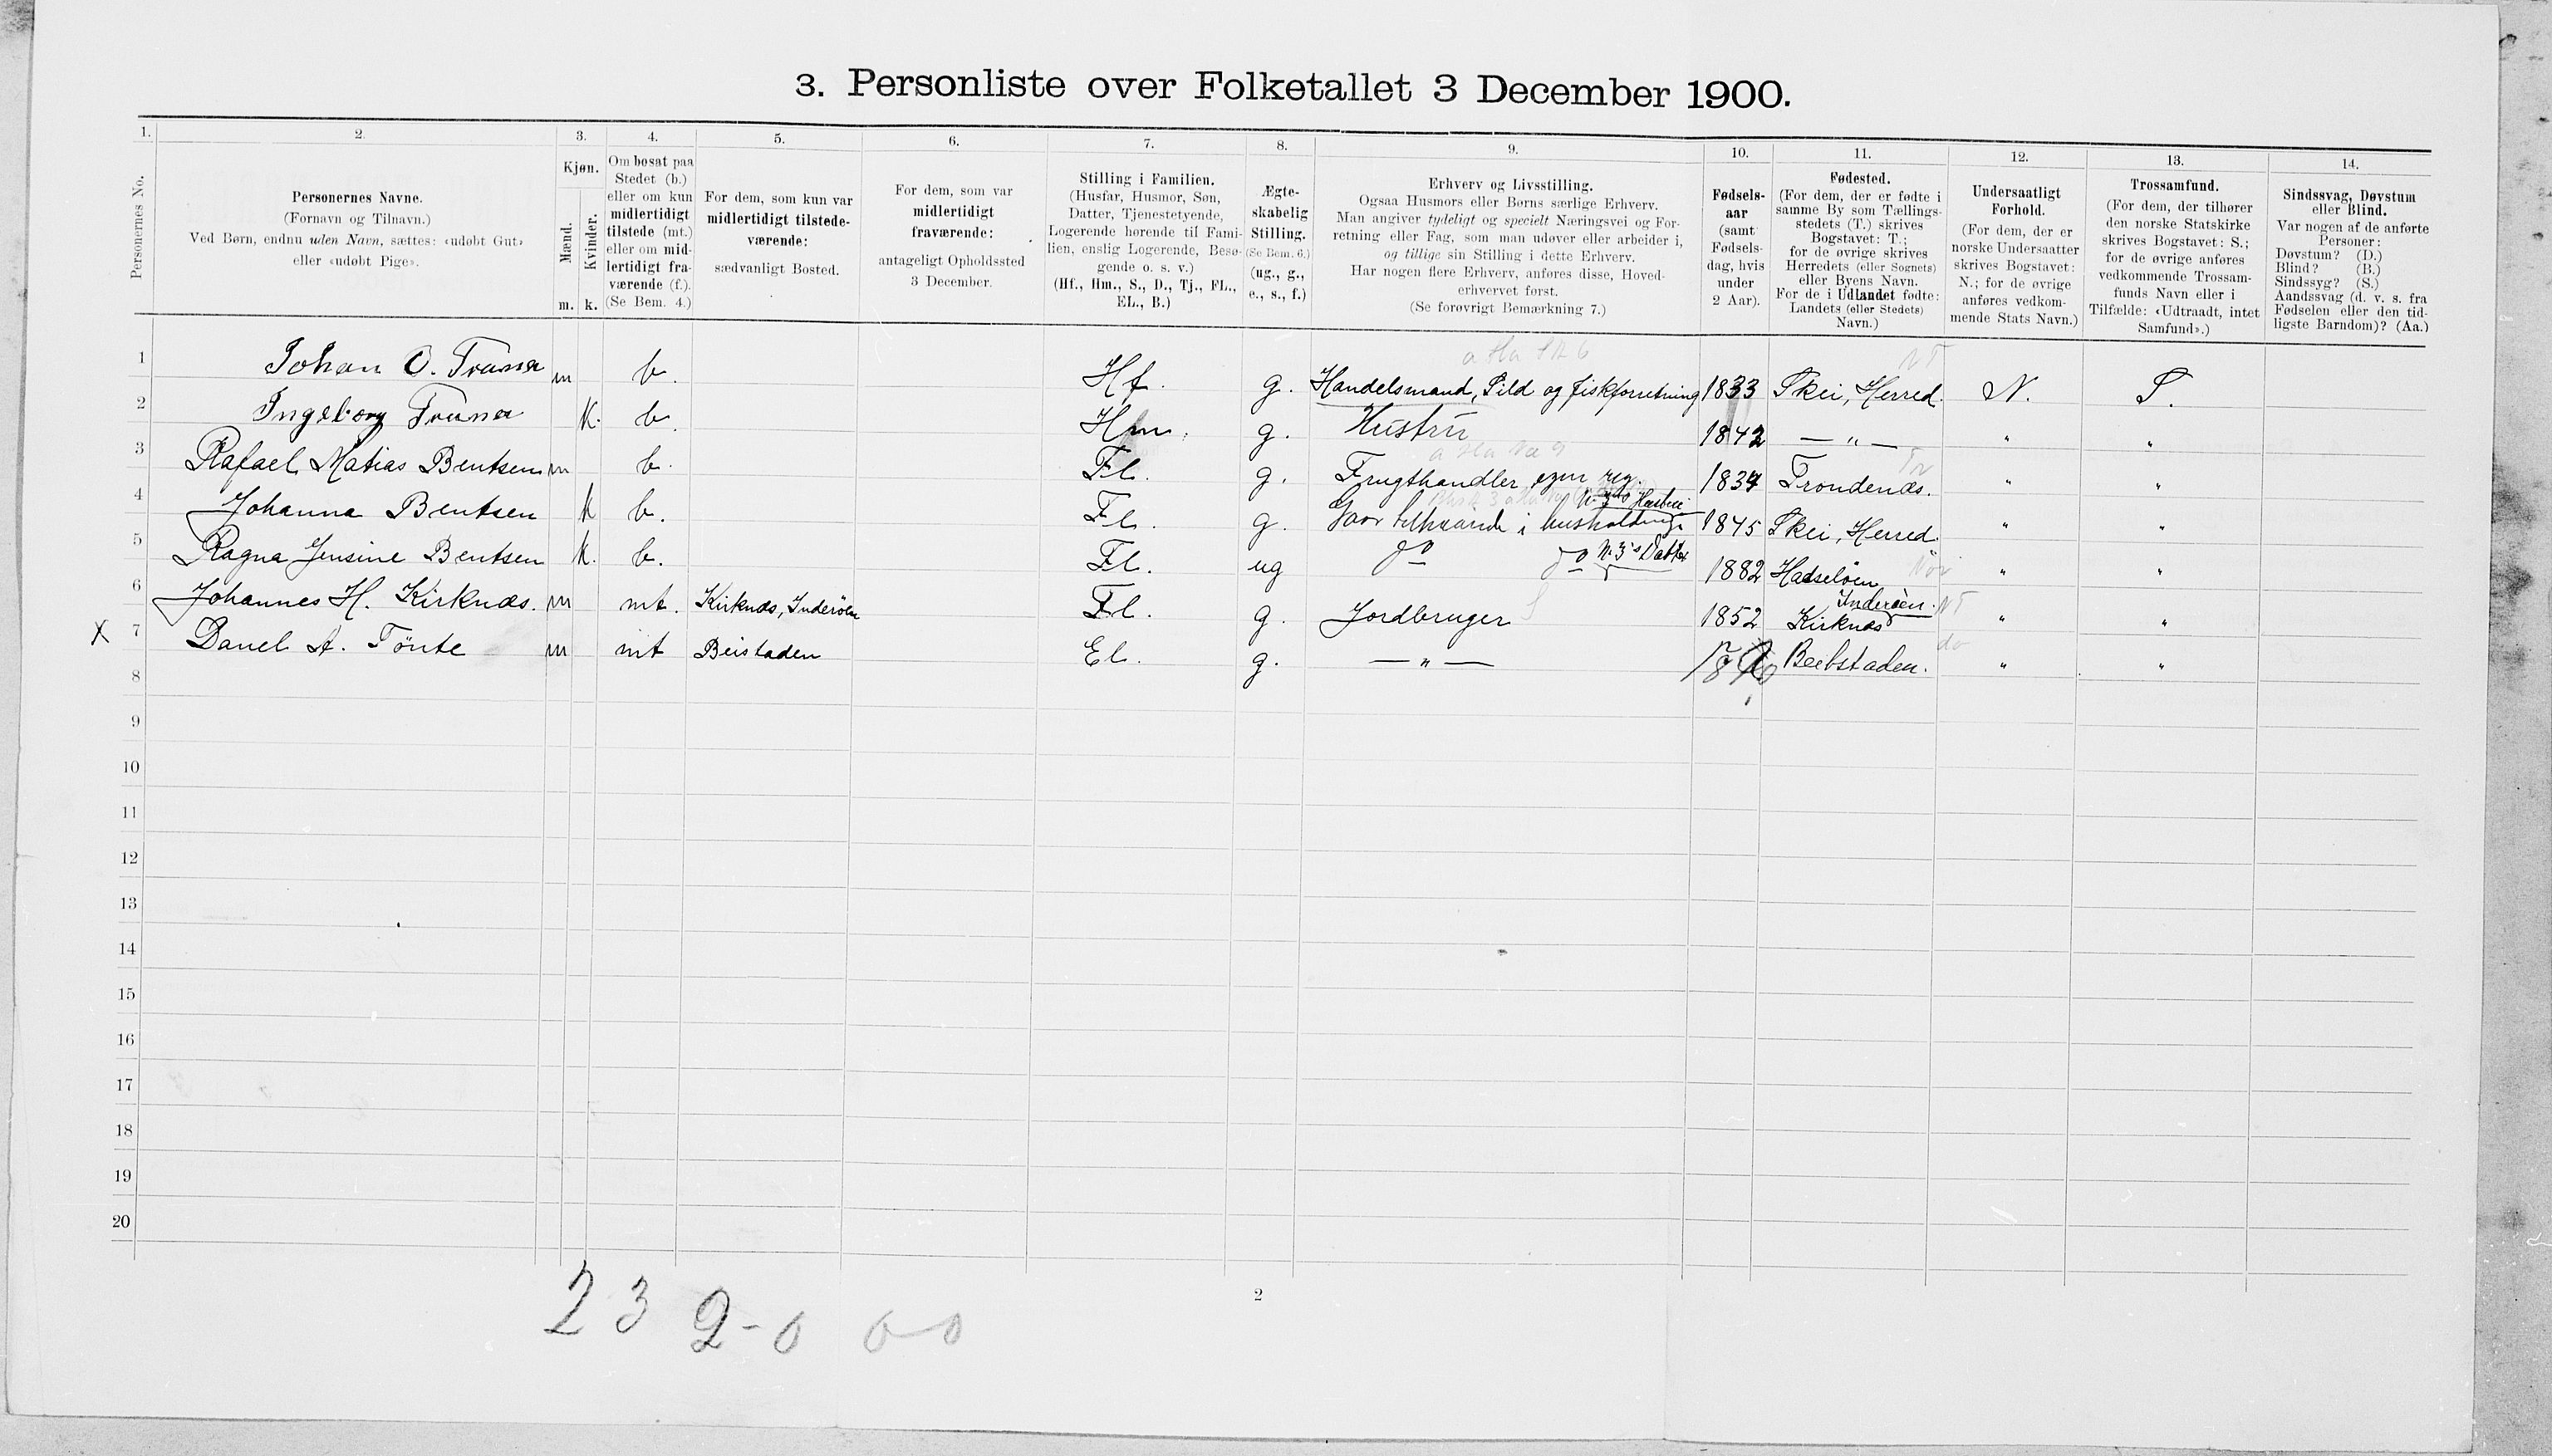 3. Personliste over Folketallet 3 December 1900.
1. 2. 3. 4. 5. 6. 7. 8. 9. 10. 11. 12. 13. 14.
Personernes No.
Personernes Navne.
(Fornavn og Tilnavn.)
Ved Børn, endnu uden Navn, sættes: «udøbt Gut»
eller «udøbt Pige».
Kjøn.
Mænd.
Kvinder.
m. k.
Om bosat paa
Stedet (b.)
eller om kun
midlertidigt
tilstede (mt.)
eller om mid-
lertidigt fra-
værende (f.).
(Se Bem. 4.)
For dem, som kun var
midlertidigt tilstede-
værende:
sædvanligt Bosted.
For dem, som var
midlertidigt
fraværende:
antageligt Opholdssted
3 December.
Stilling i Familien.
(Husfar, Husmor, Søn,
Datter, Tjenestetyende,
Logerende hørende til Fami-
lien, enslig Logerende, Besø-
gende o. s. v.)
(Hf., Hm., S., D., Tj., FL.,
EL., B.)
Ægte-
skabelig
Stilling.
(Se Bem. 6.)
(ug., g.,
e., s., f.)
Erhverv og Livsstilling.
Ogsaa Husmors eller Børns særlige Erhverv.
Man angiver tydeligt og specielt Næringsvei og For-
retning eller Fag, som man udøver eller arbeider i,
og tillige sin Stilling i dette Erhverv.
Har nogen flere Erhverv, anføres disse, Hoved-
erhvervet først.
(Se forøvrigt Bemærkning 7.)
Fødsels-
aar
(samt
Fødsels-
dag, hvis
under
2 Aar).
Fødested.
(For dem, der er fødte i
samme By som Tællings-
stedets (T.) skrives
Bogstavet: T.;
for de øvrige skrives
Herredets (eller Sognets)
eller Byens Navn.
For de i Udlandet fødte:
Landets (eller Stedets)
Navn.)
Undersaatligt
Forhold.
(For dem, der er
norske Undersaatter
skrives Bogstavet:
N.; for de øvrige
anføres vedkom-
mende Stats Navn.)
Trossamfund.
(For dem, der tilhører
den norske Statskirke
skrives Bogstavet: S.;
for de øvrige anføres
vedkommende Trossam-
funds Navn eller i
Tilfælde: «Udtraadt, intet
Samfund».)
Sindssvag, Døvstum
eller Blind.
Var nogen af de anførte
Personer:
Døvstum? (D.)
Blind? (B.)
Sindssyg? (S.)
Aandssvag (d. v. s. fra
Fødselen eller den tid-
ligste Barndom)? (Aa.)
1 Johan O. Trana m b. Hf. g. Handelsmand, Sild og fiskforretning 1833 Skei, Herred. N. S.
2 Ingeborg Trana k. b. Hm. g. Hustru 1842 — " — " "
3 Rafael Matias Bentsen m b. Fl. g. Frugthandler, egen reg. 1834 Trondenæs. " "
N. 3 Hustru
4 Johanna Bentsen k b. Fl. g. i husholdning 1845 Skei, Herred. " "
5 Ragna Jensine Bentsen k. b. Fl. ug do do N. 3's Datter 1882 Hadseløen " "
6 Johannes H. Kirknæs. m mt. Kirknæs, Inderöen Fl. g. Jordbruger 1852 Kirknæs Inderöen. NT " "
X 7 Danel A. Tönte m mt Beistaden El. g. — " — Beebstaden. do " "
8
9
10
11
12
13
14
15
16
17
18
19
20
2
2 3 2-0 0-0